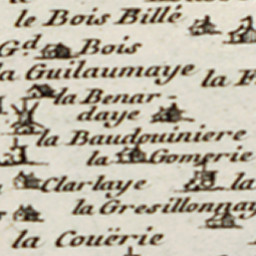 le Bois Billé
G.d Bois
la Guilaumaye
la
la Benar-
daye
la Baudouiniere
la Gomerie
Clarlaye
la
la Gresillonnay
la Couërie